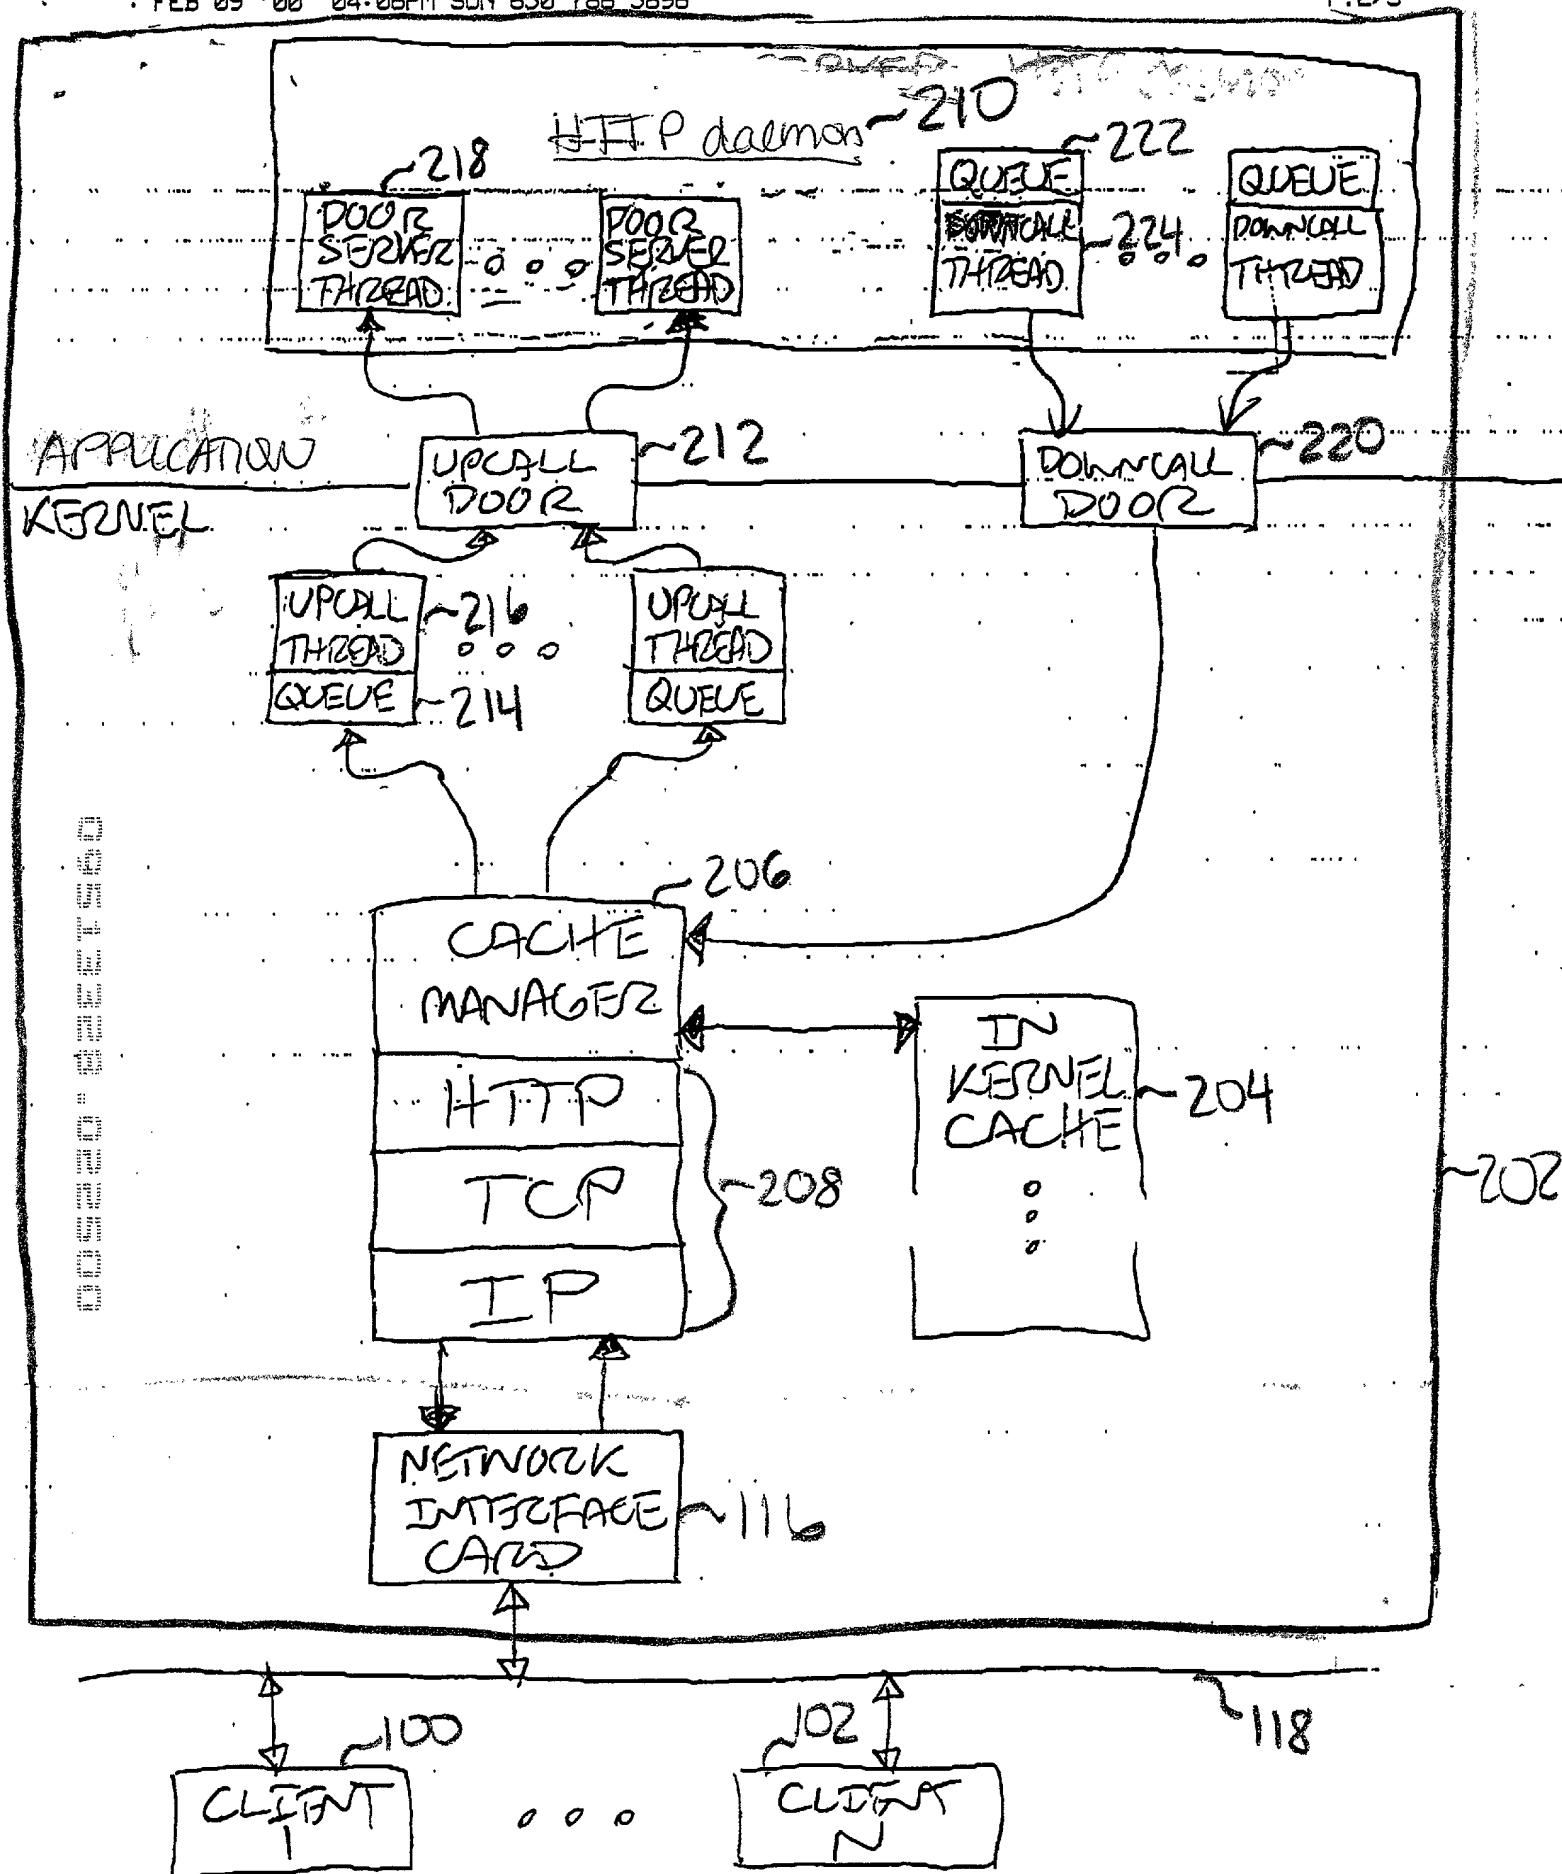 FEB 09 '00 04:08PM SUN 650 786 5896
HTTP daemon 210
218
222
DOOR
SERVER
THREAD
DOOR
SERVER
THREAD
QUEUE
DOWNCALL
THREAD
224
QUEUE
DOWNCALL
THREAD
APPLICATION
KERNEL
UPCALL
DOOR
212
DOWNCALL
DOOR
220
UPCALL
THREAD
QUEUE
216
214
UPCALL
THREAD
QUEUE
206
CACHE
MANAGER
HTTP
TCP
IP
208
IN
KERNEL
CACHE
204
202
NETWORK
INTERFACE
CARD
116
118
100
CLIENT
1
102
CLIENT
N